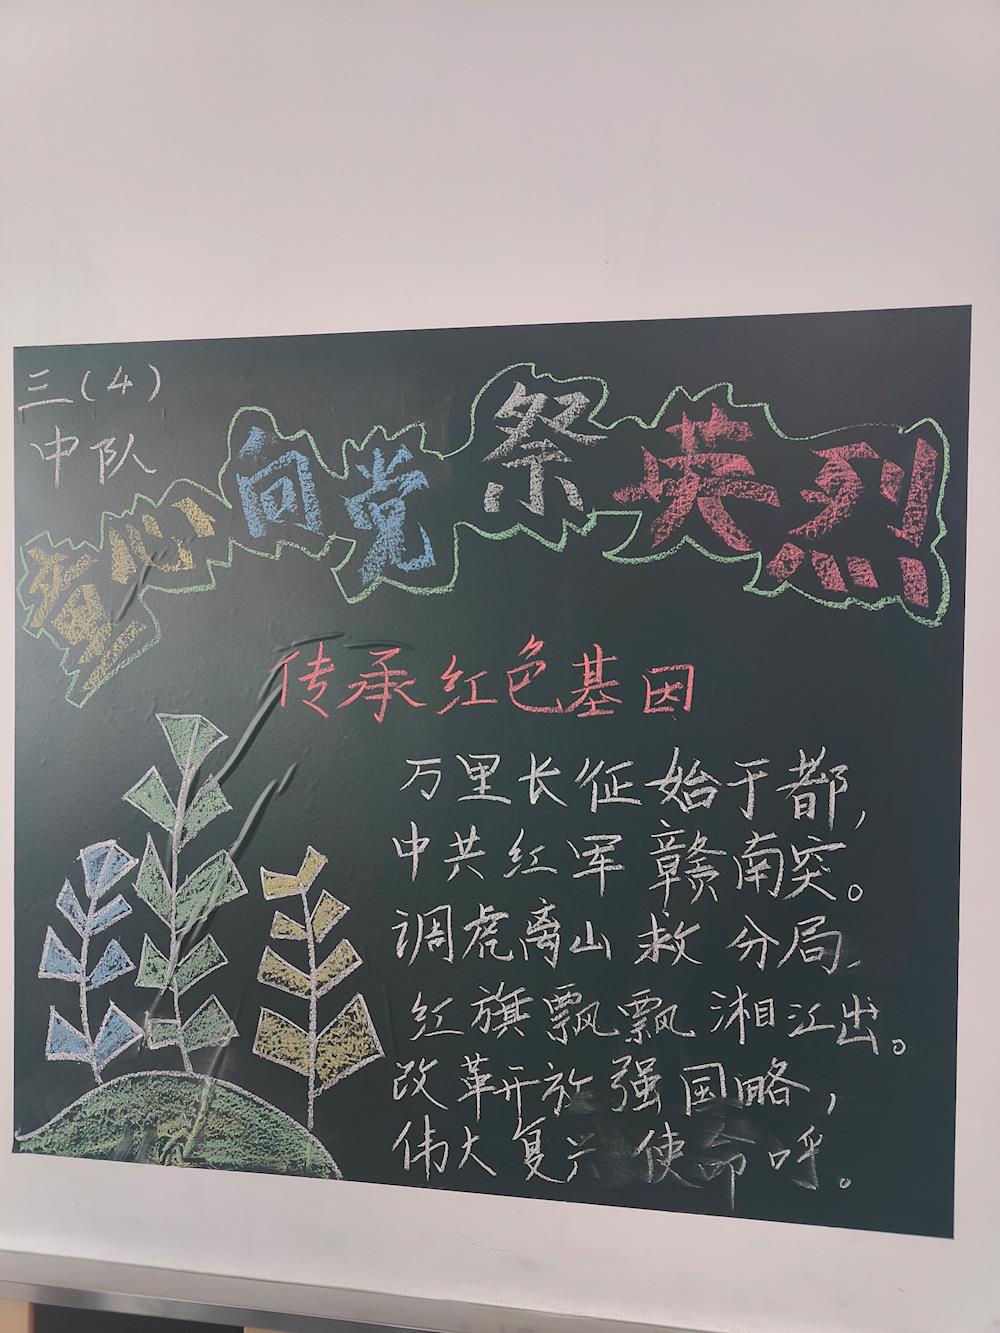 三(4)
中队
童心向党祭英烈
传承红色基因
万里长征始于都,
中共红军赣南突。
调虎离山救分局,
红旗飘飘湘江出。
改革开放强国略,
伟大复兴使命呼。